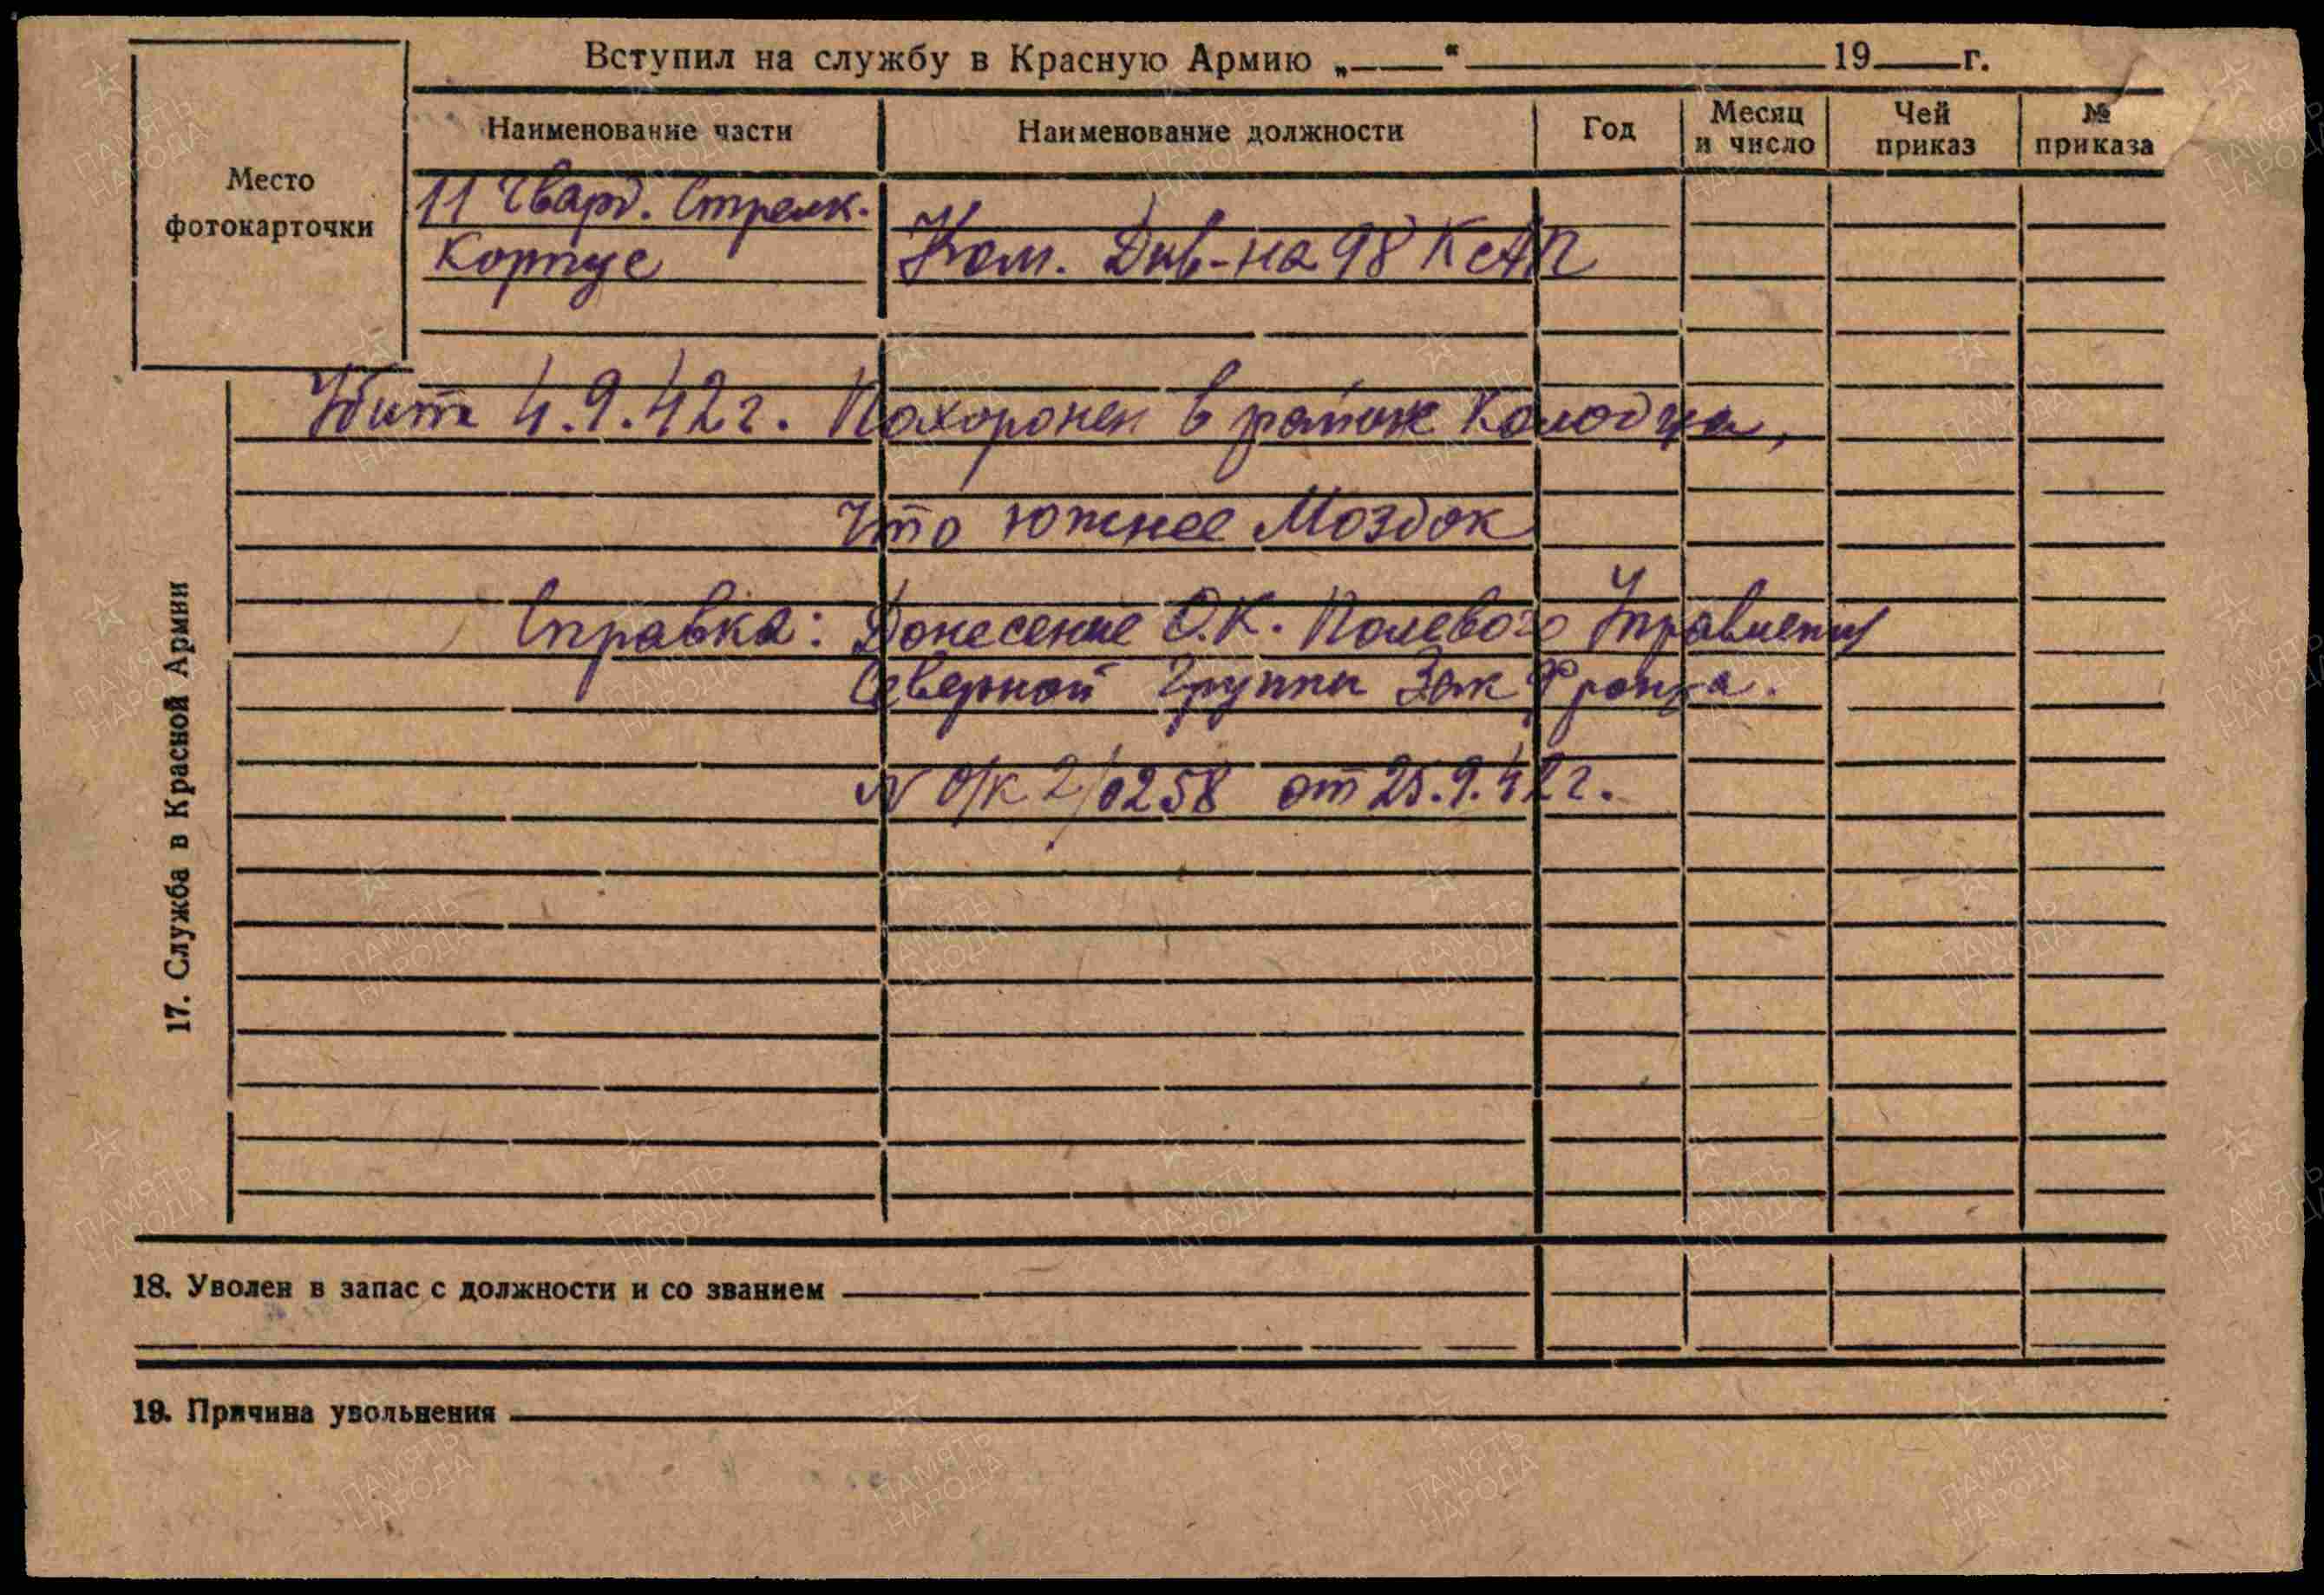 Вступил на службу в Красную Армию „____“ ____________ 19____г.
Место фотокарточки
Наименование части
Наименование должности
Год
Месяц и число
Чей приказ
№ приказа
11 Гвард. Стрелк.
Корпус
Ком. Див-на 98 КАП
Убит 4.9.42 г. Похоронен в районе Колодца,
что южнее Моздок
Справка: Донесение О.К. Полевого Управления
Северной Группы Зак Фронта.
N О/К 2/0258 от 25.9.42 г.
17. Служба в Красной Армии
18. Уволен в запас с должности и со званием
19. Причина увольнения
ПАМЯТЬ НАРОДА